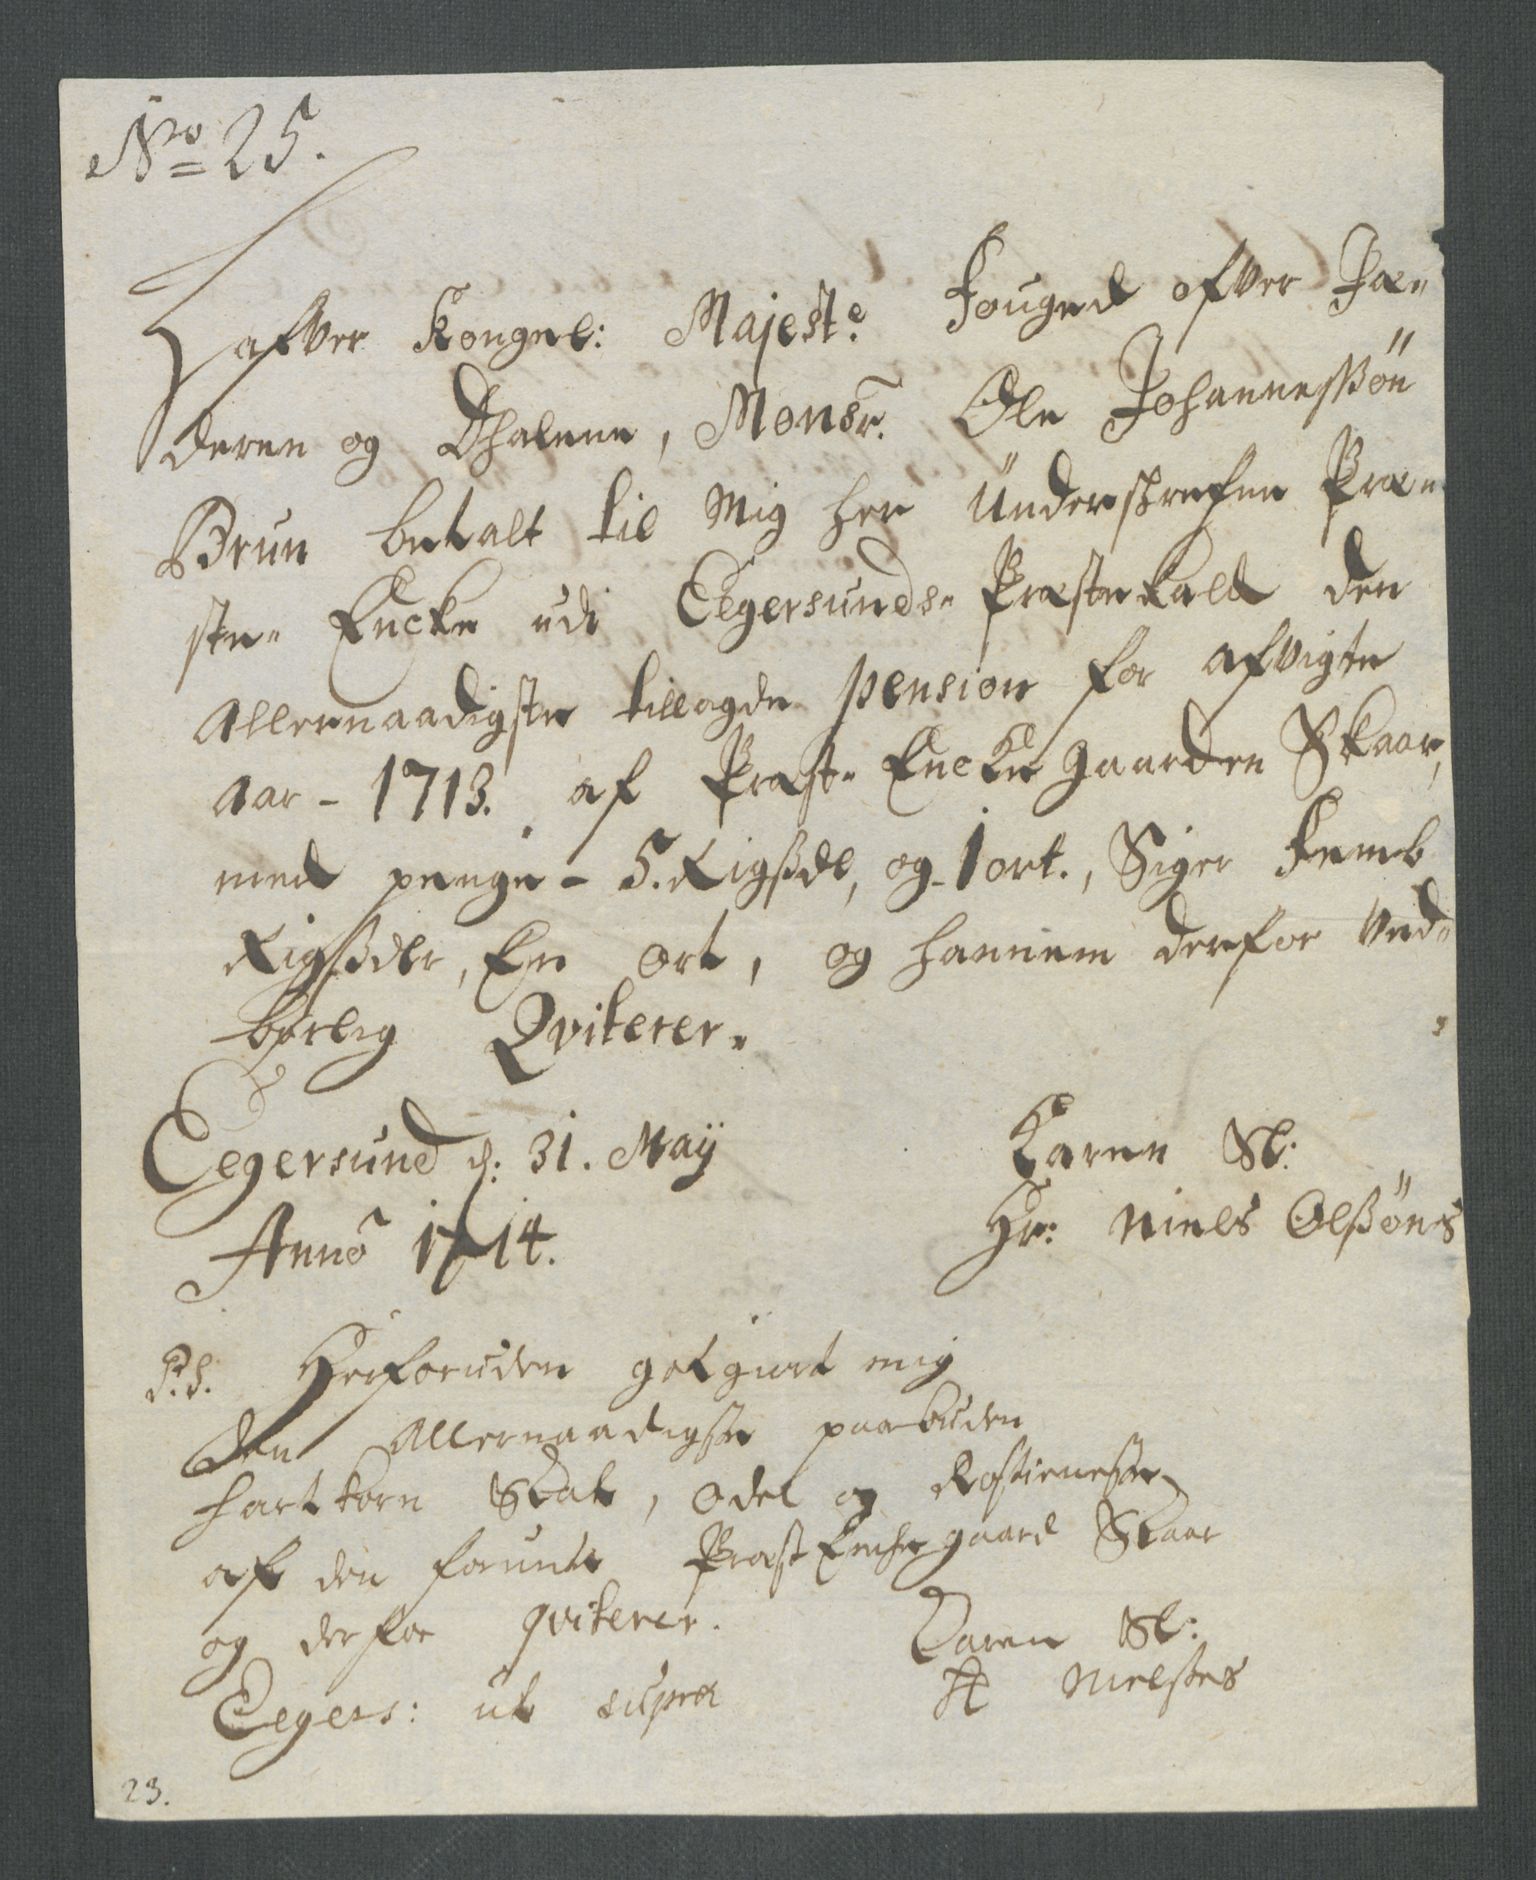 No 25.
Hafver Kongel: Majestt: Fouged ofver Jæ-
deren og Dhalene, Monsr. Ole Johannessøn
Brun betalt til Mig her Underskrefne Præ-
ste- Encke udi Eegersunds- Præstekald den
Allernaadigste tillagde pension for afvigte
Aar - 1713. af Præst- Encke gaarden Skaar,
med penge - 5. Rigsdl, og - 1 ort., Siger Femb
Rigsdlr, En Ort, og hannem derfor Ved-
børlig Qviterer.
Eegersund d: 31. Maÿ
Karen Sl:
Anno 1714.
Hr: Niels Olsøns
P.S. Herforuden godtgiort mig
den Allernaadigste paabuden
hartkorn Skat, odel og Rostieneste
af den forundte Præst Enche gaard Skaar
og derfor qviterer.
Karen Sl:
Eegers: ut supra
H Nielses
23.